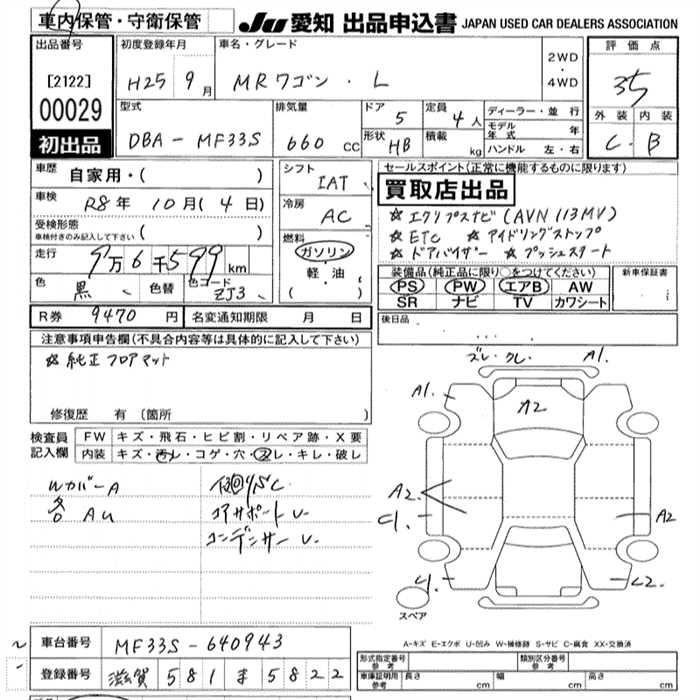 車内保管・守衛保管
JU 愛知 出品申込書 JAPAN USED CAR DEALERS ASSOCIATION
出品番号
[2122]
00029
初出品
初度登録年月
H25 9月
車名・グレード
MRワゴン・L
2WD
・
4WD
評価点
35
外装 内装
C B
型式
DBA-MF33S
排気量
660 cc
ドア 5
形状 HB
定員 4人
積載 kg
ディーラー・並行
モデル年式 年
ハンドル 左・右
車歴 自家用・( )
車検 R8年 10月(4日)
受検形態
車検付きのみ記入して下さい ( )
走行 9万6千599km
色 黒
色替
色コード ZJ3
シフト IAT
冷房 AC
燃料
ガソリン
軽油
( )
セールスポイント(正常に機能するものに限ります)
買取店出品
☆エクリプスナビ(AVN113MV)
☆ETC ☆アイドリングストップ
☆ドアバイザー ☆プッシュスタート
装備品(純正品に限り○をつけてください)
PS PW エアB AW
SR ナビ TV カワシート
新車保証書
R券 9470円
名変通知期限 月 日
後日品
注意事項申告欄(不具合内容等は具体的に記入して下さい)
☆純正フロアマット
修復歴 有(箇所 )
検査員記入欄
FW キズ・飛石・ヒビ割・リペア跡・X要
内装 キズ・汚レ・コゲ・穴・スレ・キレ・破レ
Wカバー A
各 AU
コアサポート U
コンデンサー U
ズレ・クレ
A1
A1
A2
A2
A2
スペア
A-キズ E-エクボ U-凹み W-補修跡 S-サビ C-腐食 XX-交換済
車台番号 MF33S-640943
登録番号 滋賀 581 ま 5822
形式指定番号 参考
類別区分番号 参考
車庫証明用参考 長さ cm 幅 cm 高さ cm